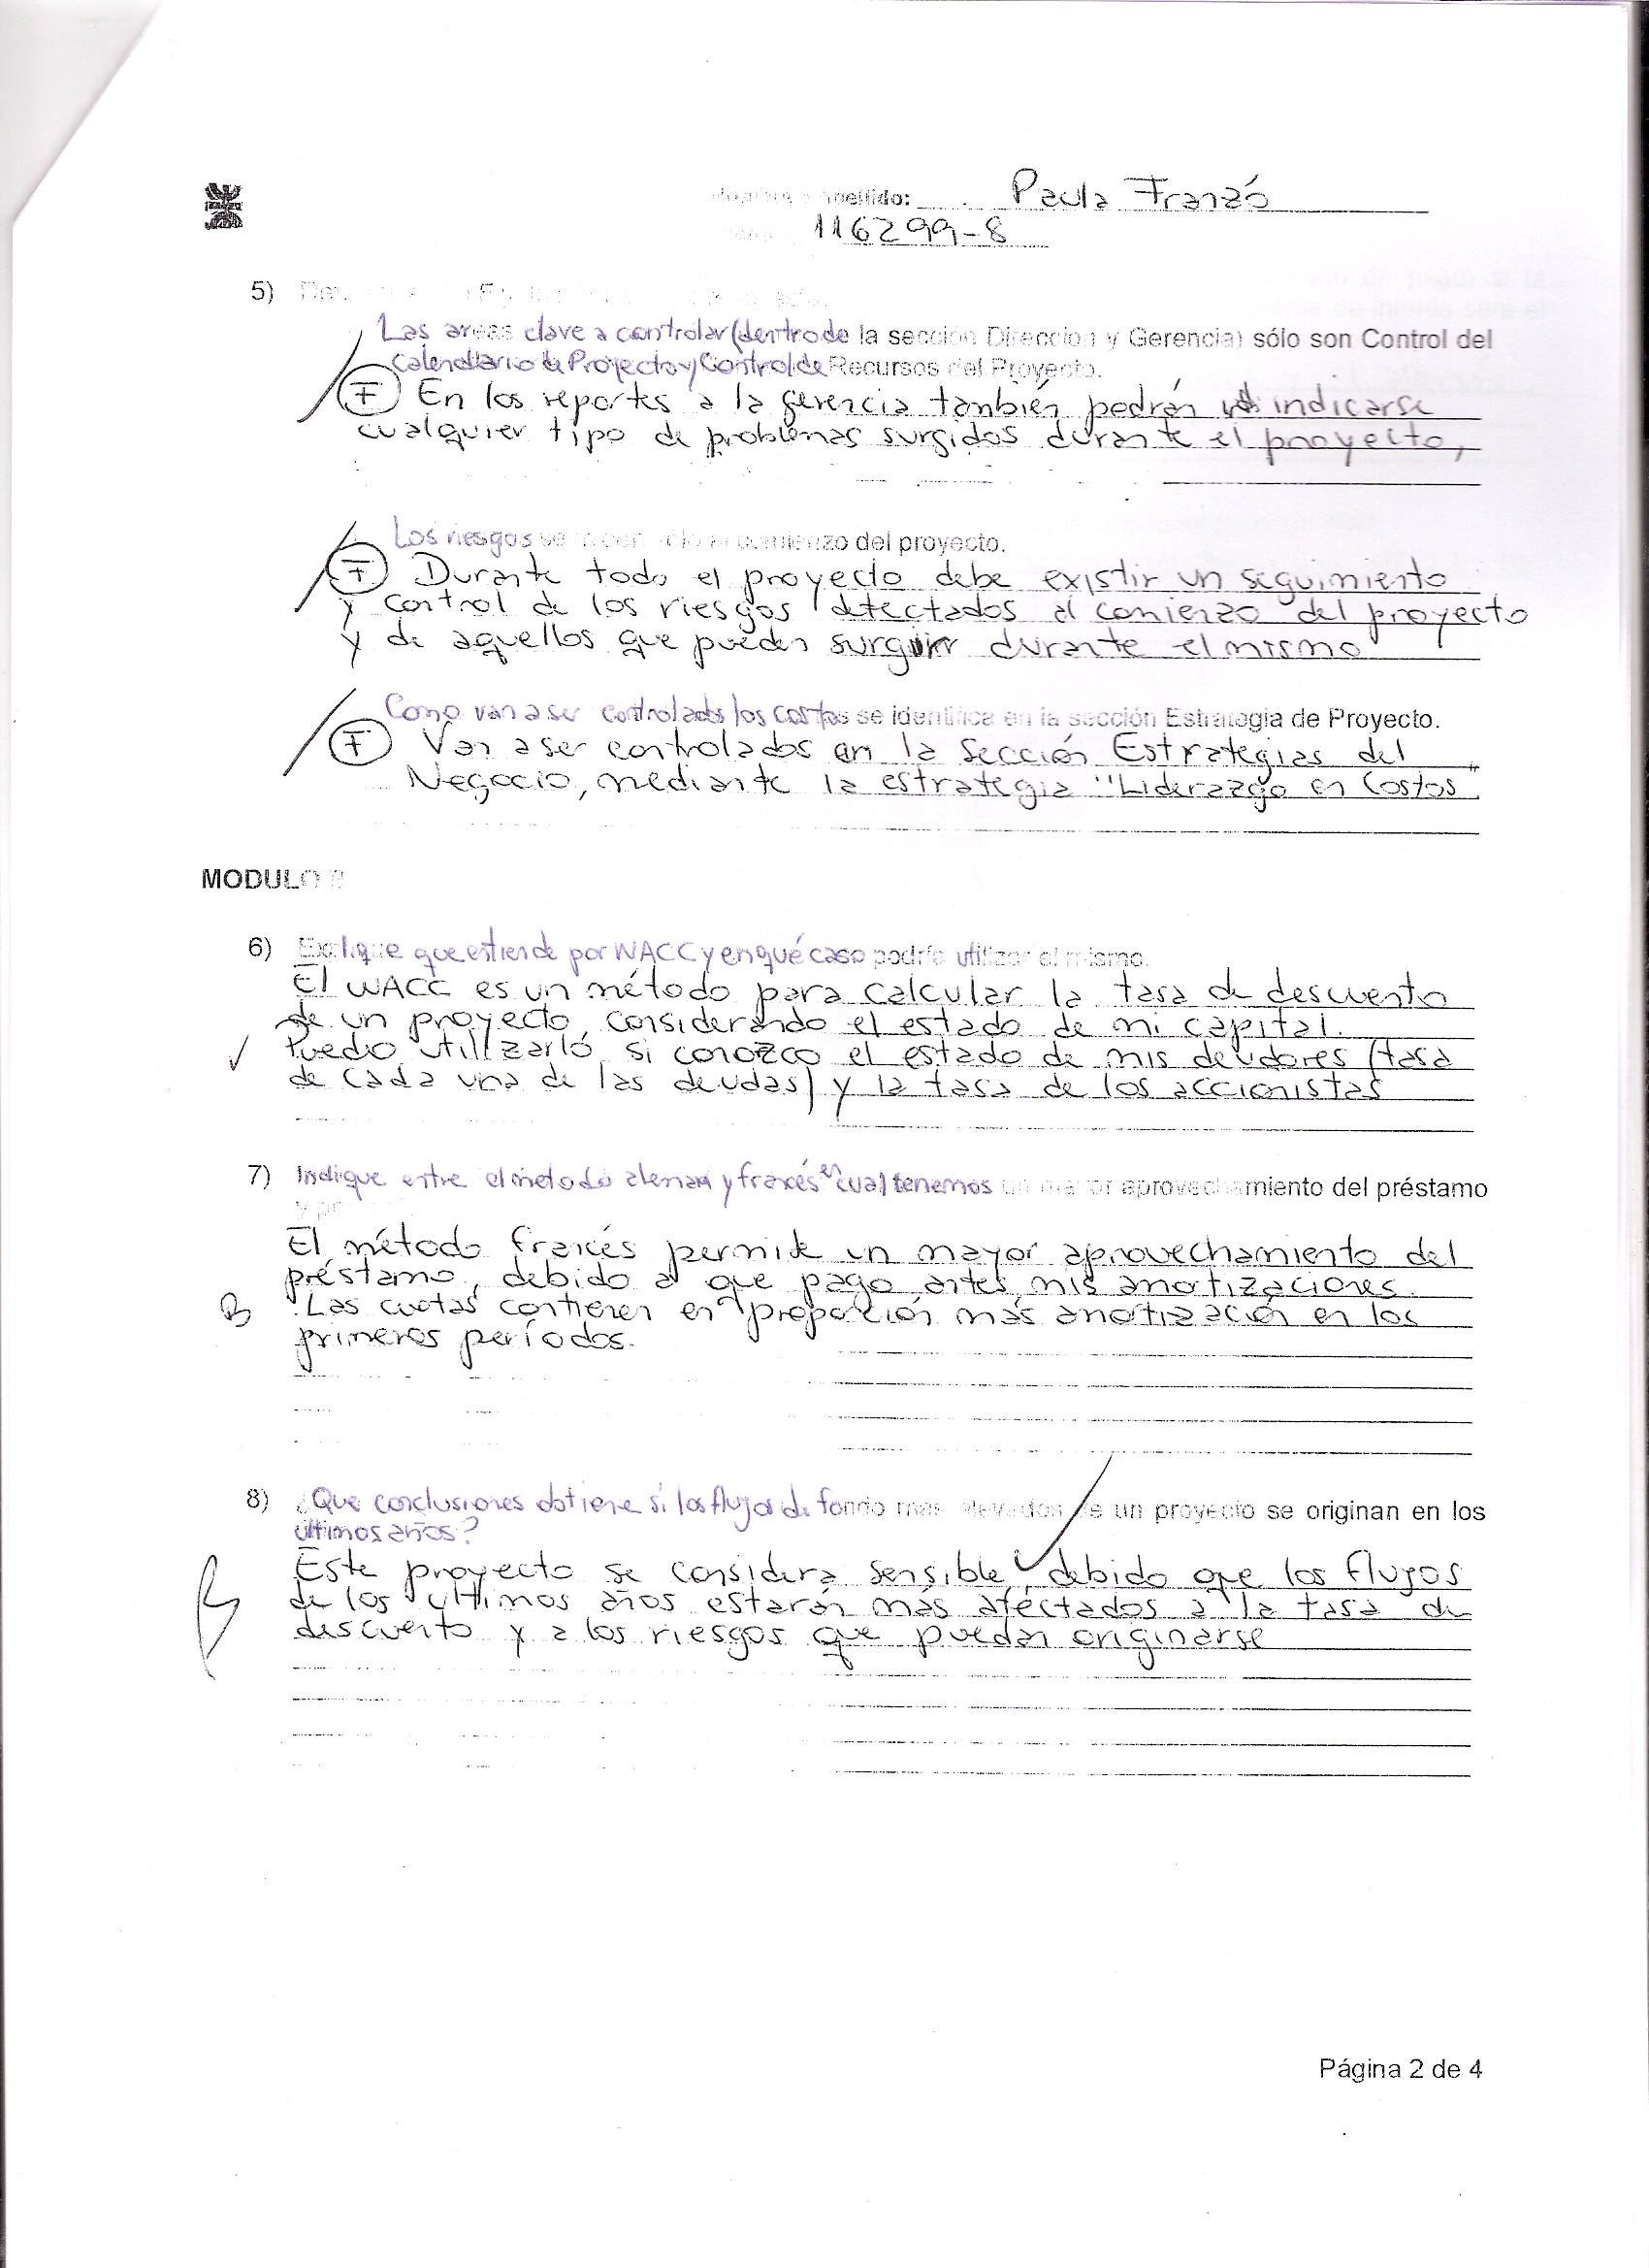 pellido: Paula Franzó
116299-8
5)
Las areas clave a controlar (dentro de la sección Direccion y Gerencia) sólo son Control del
Calendario de Proyecto y Control de Recursos del Proyecto.
F En los reportes a la gerencia también podrán indicarse
cualquier tipo de problemas surgidos durante el proyecto,
Los riesgos se comienzo del proyecto.
F Durante todo el proyecto debe existir un seguimiento
y control de los riesgos detectados al comienzo del proyecto
y de aquellos que pueden surguir durante el mismo
Como van a ser controlados los costos se identifica en la sección Estrategia de Proyecto.
F Van a ser controlados en la Sección Estrategias del
Negocio, mediante la estrategia "Liderazgo en Costos"
MODULO
6) Explique que entiende por WACC y en qué caso podría utilizar el mismo.
El WACC es un método para calcular la tasa de descuento
de un proyecto, considerando el estado de mi capital.
Puedo utilizarlo si conozco el estado de mis deudores (tasa
de cada una de las deudas) y la tasa de los accionistas
7) Indique entre el metodo aleman y francés en cual tenemos un mayor aprovechamiento del préstamo
El método francés permite un mayor aprovechamiento del
préstamo, debido a que pago antes mis amortizaciones.
B Las cuotas contienen en proporción más amortización en los
primeros períodos.
8) ¿Que conclusiones obtiene si los flujos de fondo mas elevados de un proyecto se originan en los
últimos años?
Este proyecto se considera sensible, debido que los flujos
de los ultimos años estarán más afectados a la tasa de
descuento y a los riesgos que puedan originarse
Página 2 de 4